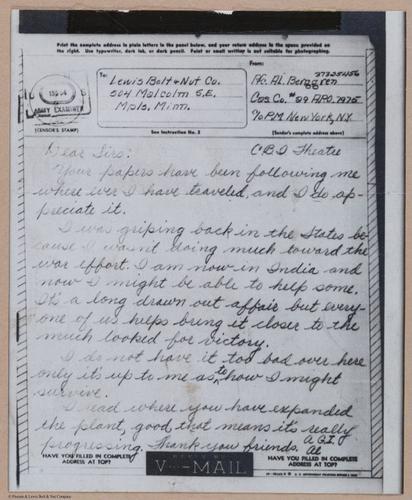 Print the complete address in plain letters in the panel below, and your return address in the space provided on
the right. Use typewriter, dark ink, or dark pencil. Faint or small writing is not suitable for photographing.
To:
Lewis Bolt & Nut Co.
504 Malcolm S.E.
Mpls, Minn.
From:
37325456
Pfc. Al. Berggren
Cas Co. #89 APO. 7875
% P.M. New York, N.Y.
ARMY EXAMINER
(CENSOR'S STAMP)
See Instruction No. 2
(Sender's complete address above)
C B I Theatre
Dear Sirs:
Your papers have been following me
where ever I have traveled, and I do ap-
preciate it.
I was griping back in the States be-
cause I wasn't doing much toward the
war effort. I am now in India and
now I might be able to help some.
It's a long drawn out affair but every-
one of us helps bring it closer to the
much looked for victory.
I do not have it too bad over here
only it's up to me as to how I might
survive.
I read where you have expanded
the plant, good that means it's really
progressing. Thank you friends. A G.I.
Al
HAVE YOU FILLED IN COMPLETE
ADDRESS AT TOP?
V···-MAIL
HAVE YOU FILLED IN COMPLETE
ADDRESS AT TOP?